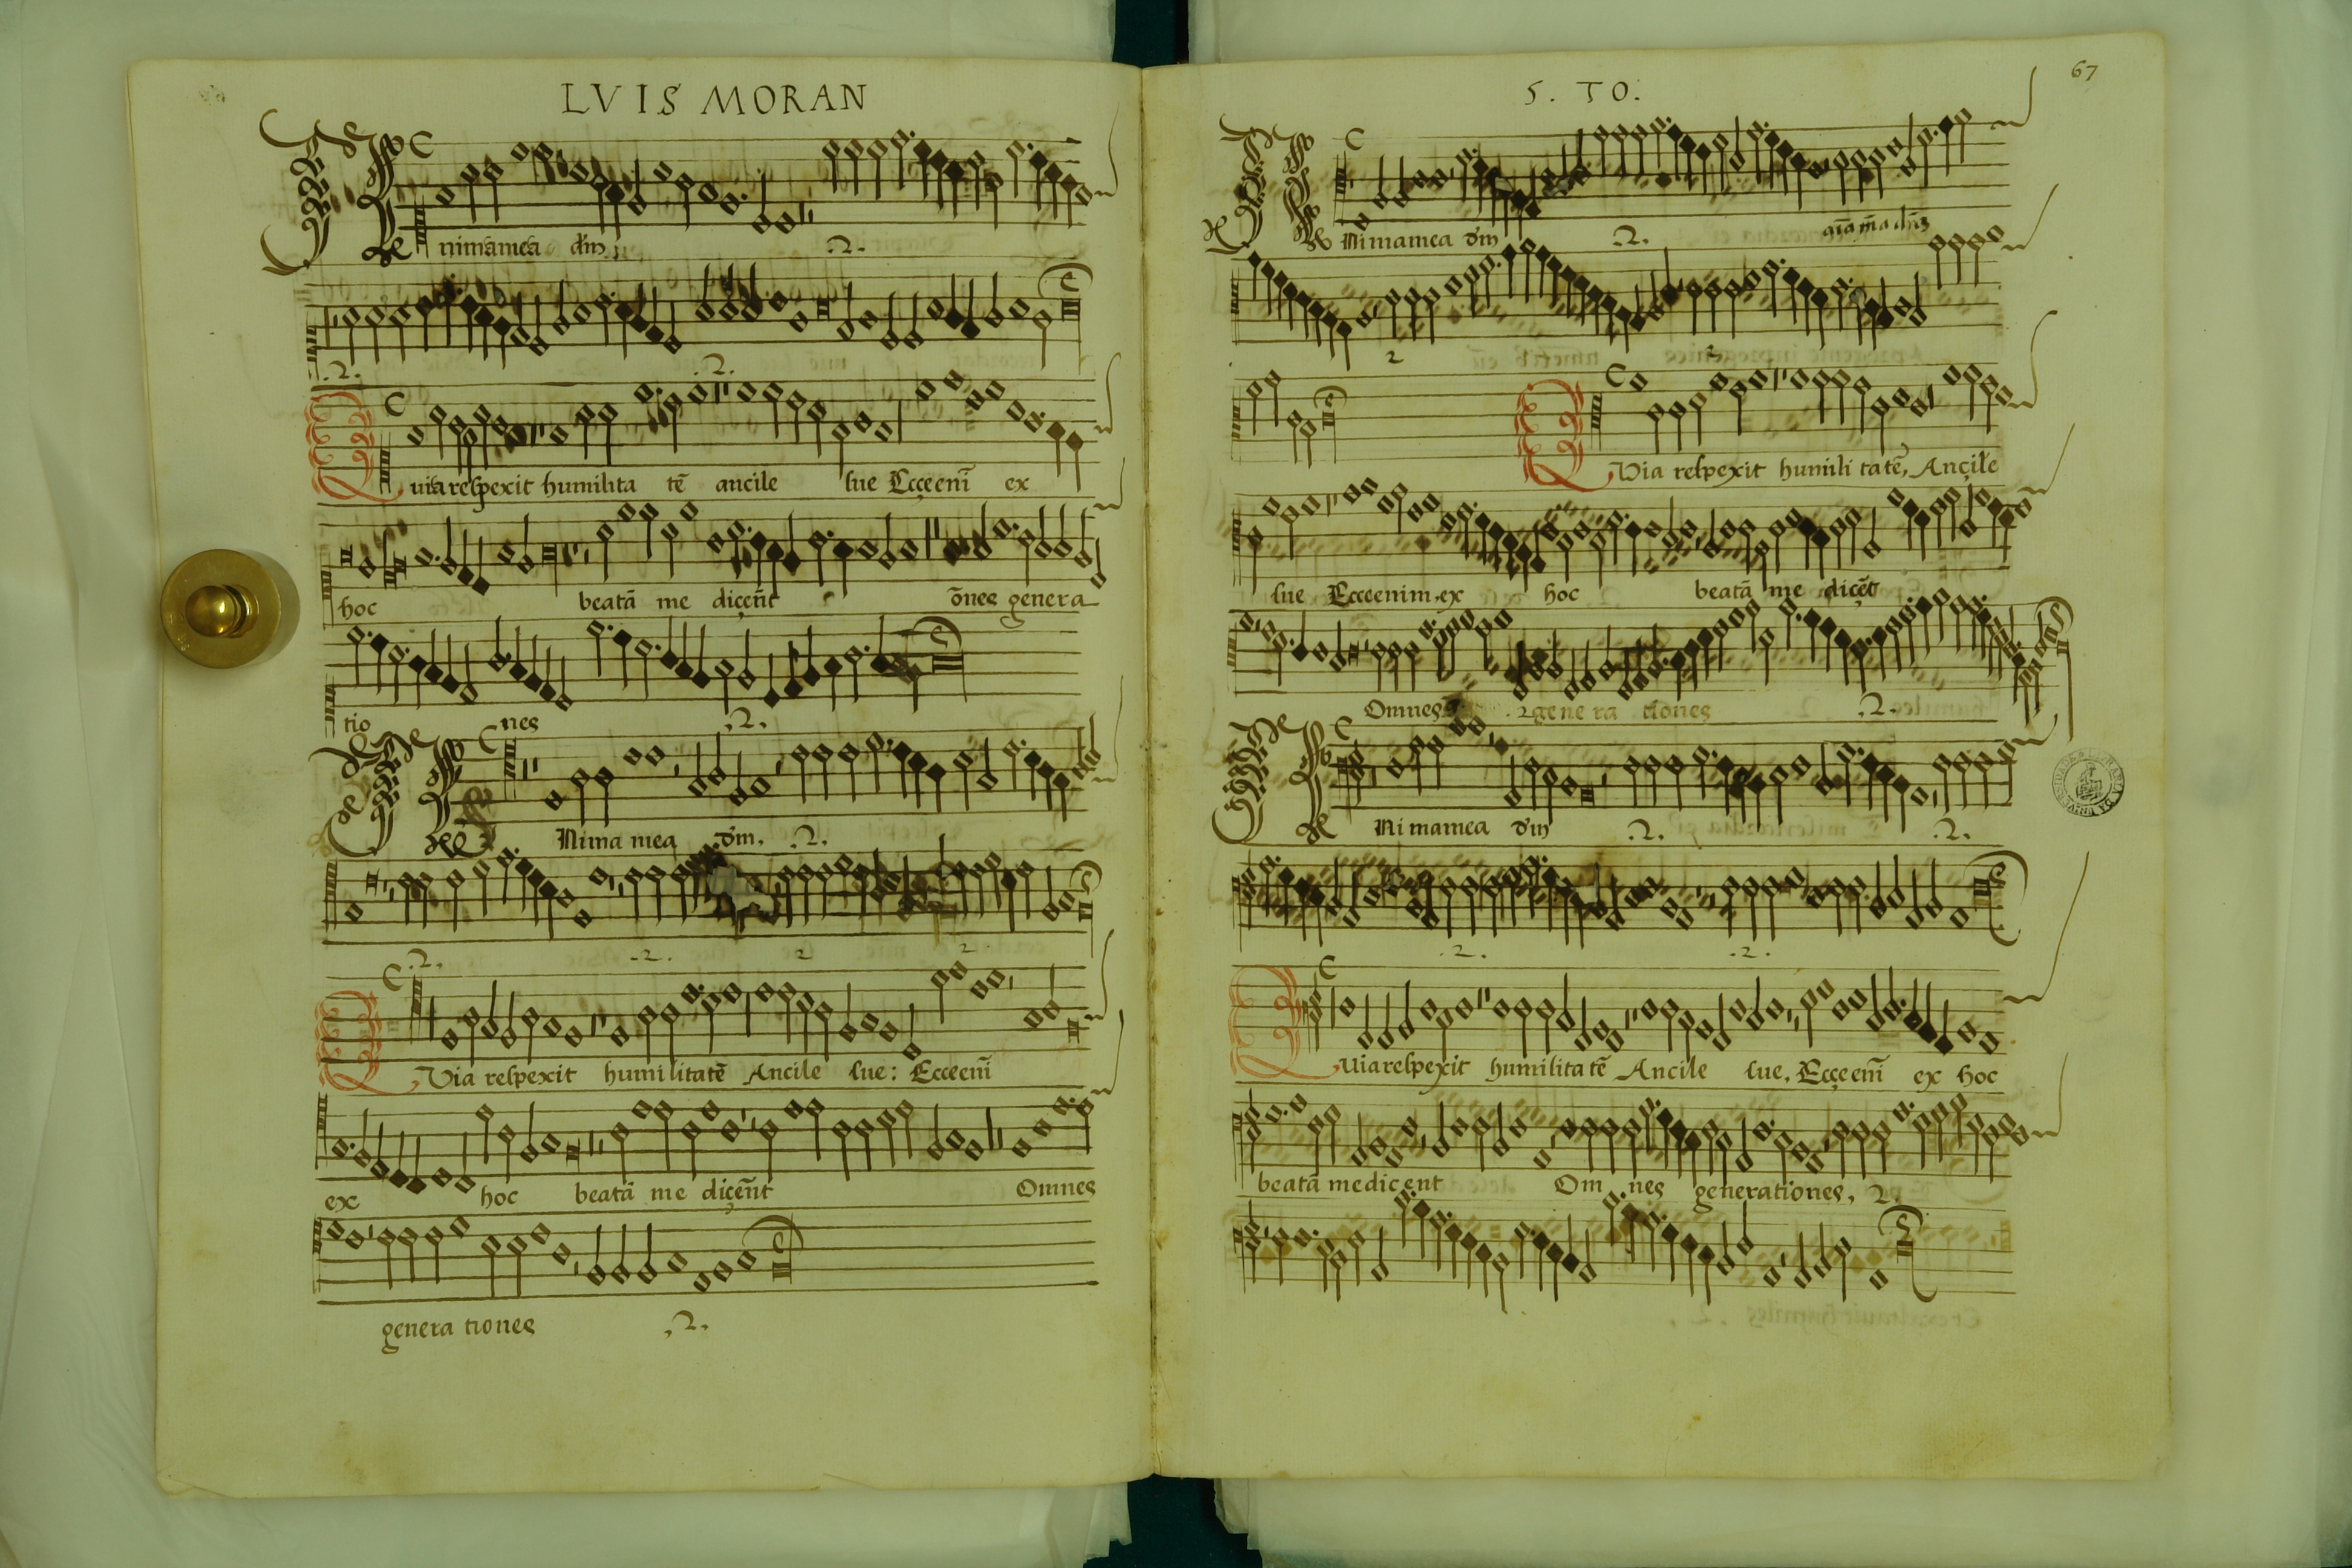 LVIS MORAN
nimāmea dn̄m .2.
.2. .2.
uiarespexit humilita tē ancile sue Ecçeenī ex
hoc beatā me diçēnt ōnes genera
tio nes .2.
Nima mea dm̄. .2.
.2. .2. 2 2
Via respexit humilitatē Ancile sue: Ecceenī
ex hoc beatā me diçēnt Omnes
genera tiones .2.
5. TO.
67
Nimamea dm̄ .2. aīa m̄a dn̄s
2 2
Via respexit humili tatē, Ançile
sue Ecceenim ex hoc beatā me diçēt
Omnes .2 gene ra tiones .2.
Ni mamea dm̄ .2. .2.
.2. .2.
Uiarespexit humilitatē Ancile sue, Ecçeenī ex hoc
beatā medicent Om nes generationes, 2.